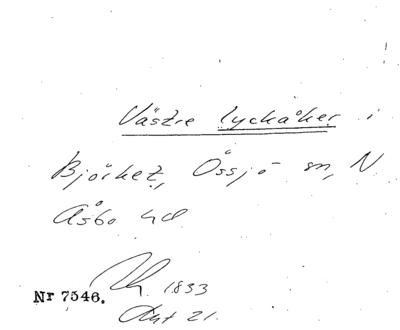 Västre lyckåker i
Björket, Össjö sn, N
Åsbo hd
1833
Nr 7546.
Akt 21.